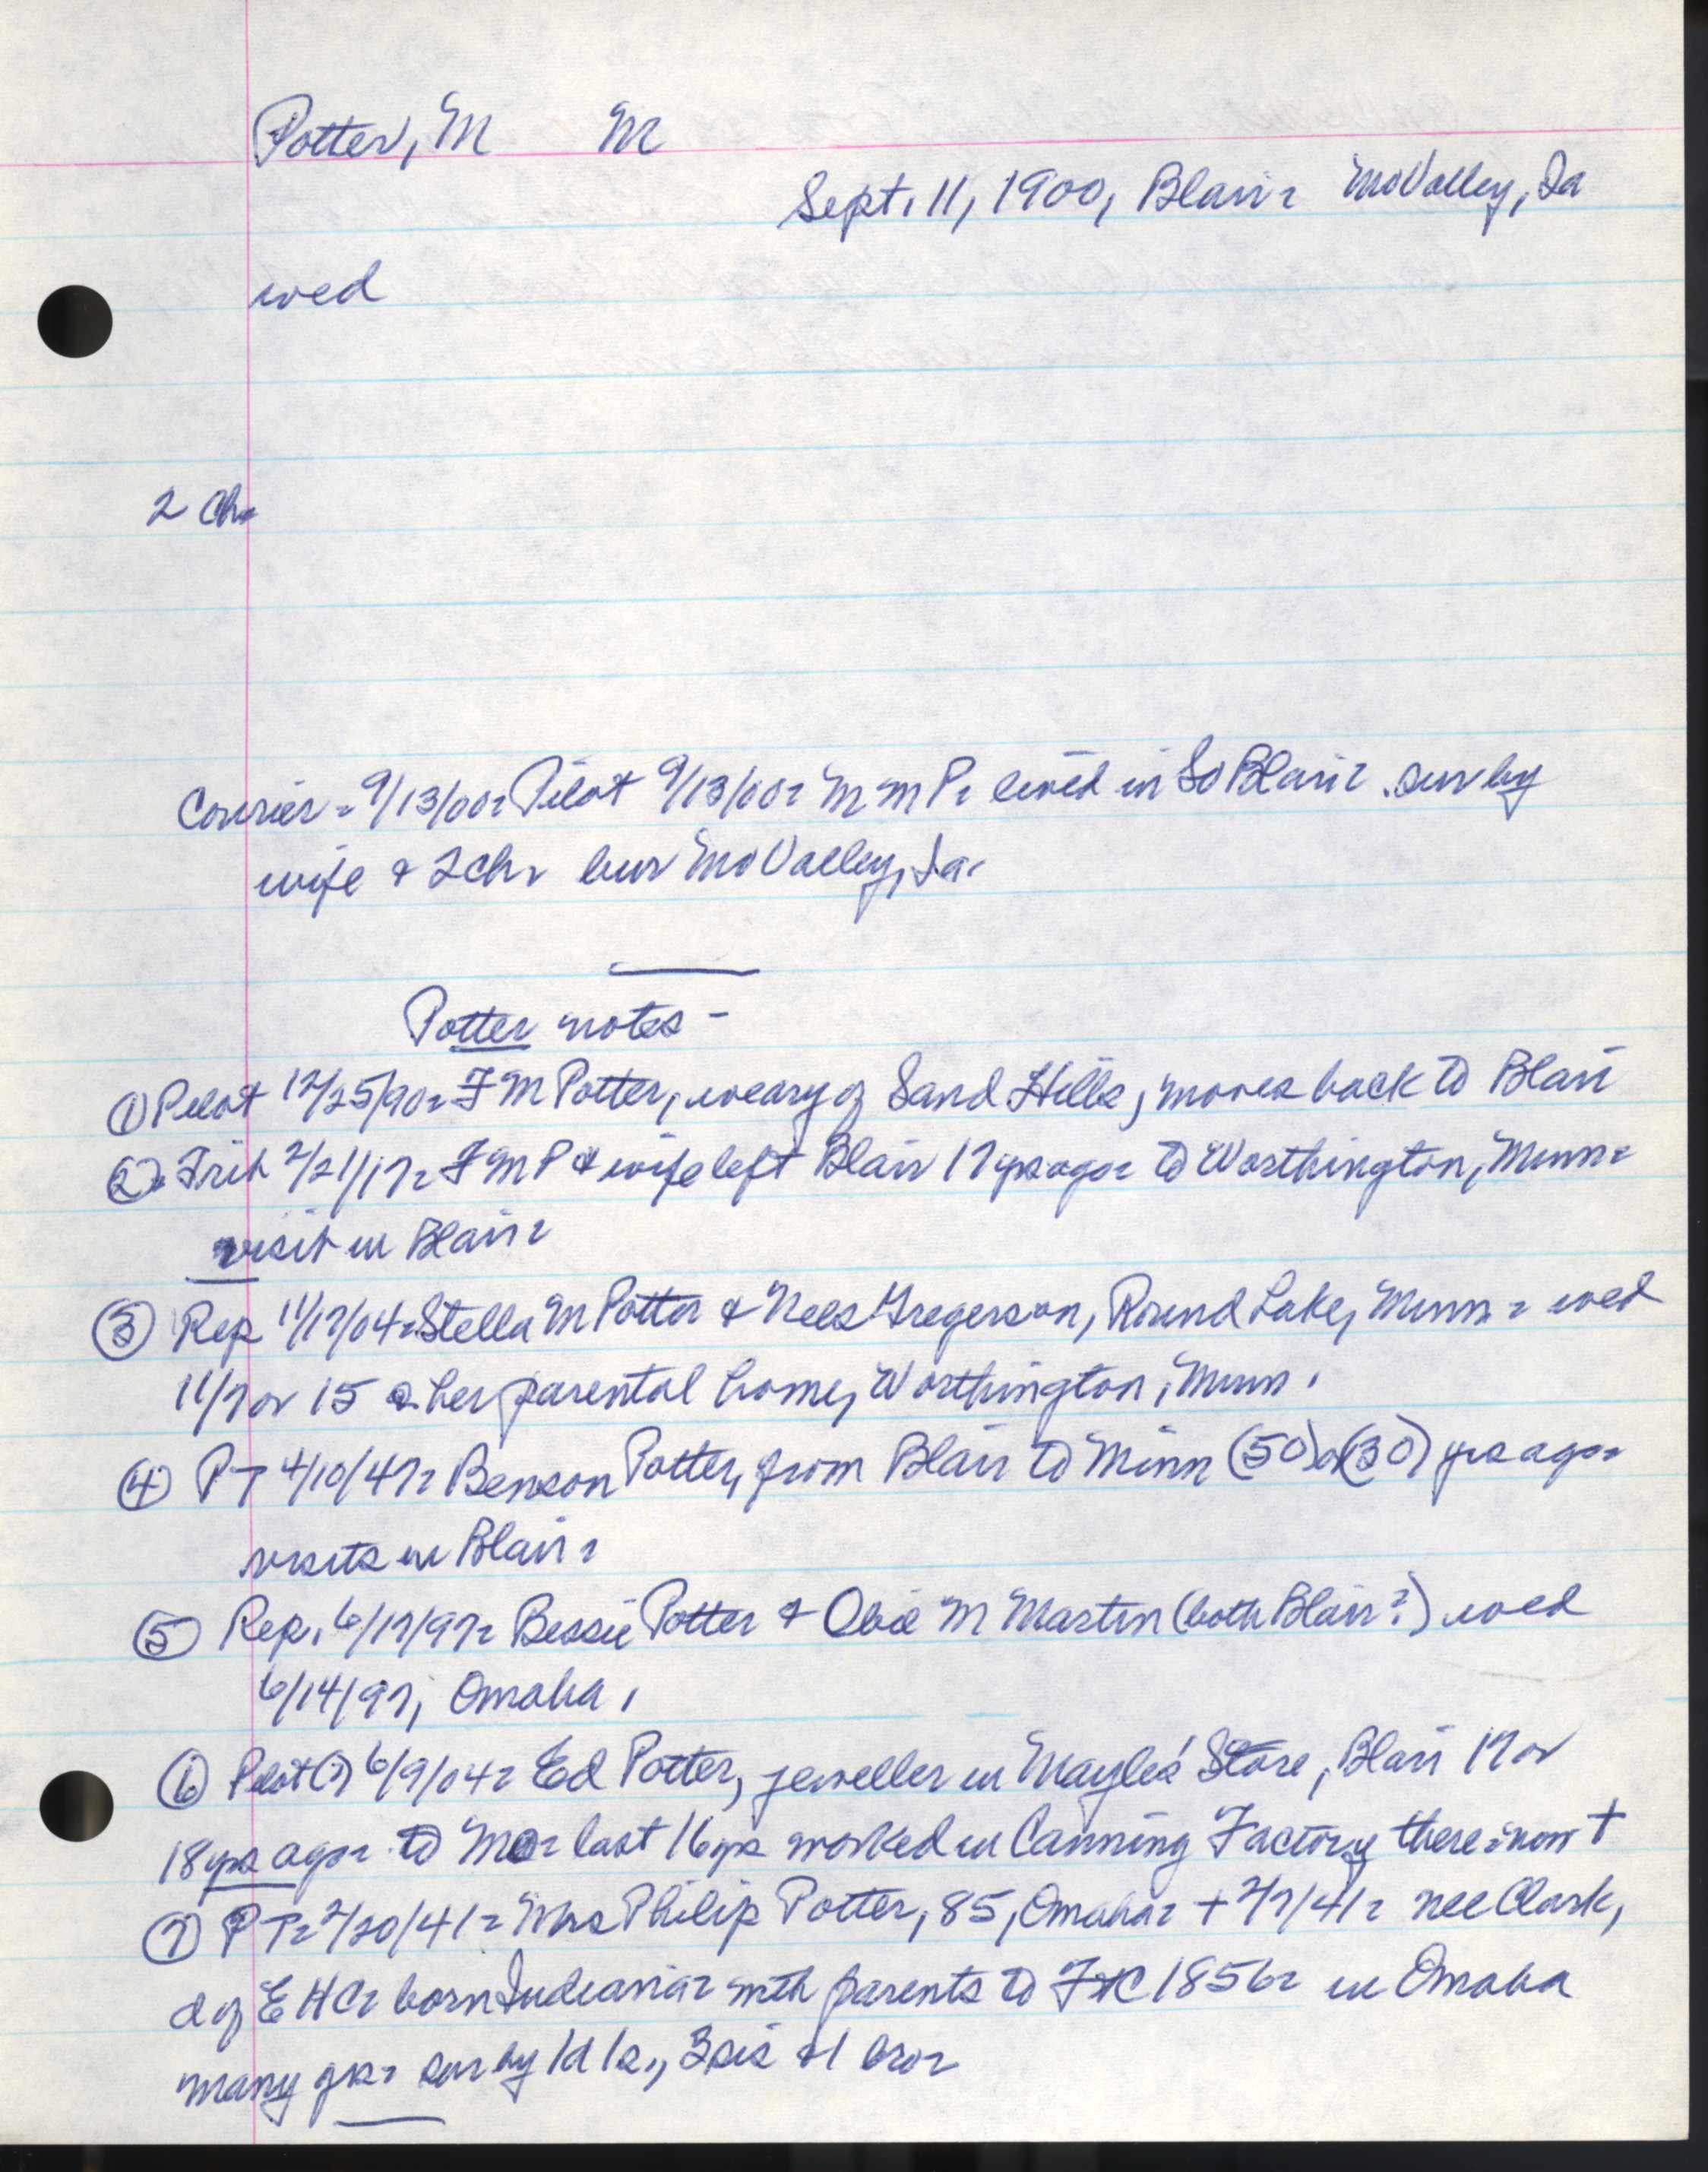 Potter, M M
Sept. 11, 1900, Blair - Mo Valley, Ia
wed
2 Ch-
Courier - 9/13/00- Pilot 9/13/00- M M P- lived in So Blair - sur by
wife & 2 ch - bur Mo Valley, Ia.
Potter notes -
① Pilot 12/25/90- F M Potter, weary of Sand Hills, moves back to Blair
② Trib 2/21/17- F M P & wife left Blair 17 yrs ago - to Worthington, Minn -
visit in Blair -
③ Rep 11/17/04- Stella M Potter & Nels Gregerson, Round Lake, Minn - wed
11/7 or 15 @ her parental home, Worthington, Minn.
④ P T 4/10/47- Benson Potter, from Blair to Minn (50) or (30) yrs ago -
visits in Blair -
⑤ Rep. 6/17/97- Bessie Potter & Obie M Martin (both Blair?) wed
6/14/97, Omaha.
⑥ Pilot(?) 6/9/04- Ed Potter, jeweller in Mayle's Store, Blair 17 or
18 yrs ago - to Mo - last 16 yrs worked in Canning Factory there - now +
⑦ P T- 2/20/41- Mrs Philip Potter, 85, Omaha - + 2/7/41- nee Clark,
d of E H C- born Indiana - with parents to 1856- in Omaha
many yrs - sur by 1d 1s., 3 sis & 1 bro -